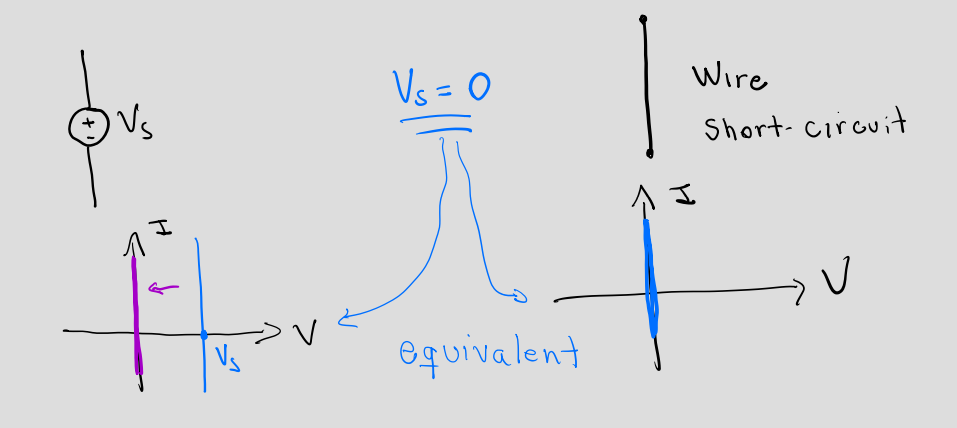 Vs
I
V
Vs
Vs = 0
equivalent
Wire
Short-circuit
I
V